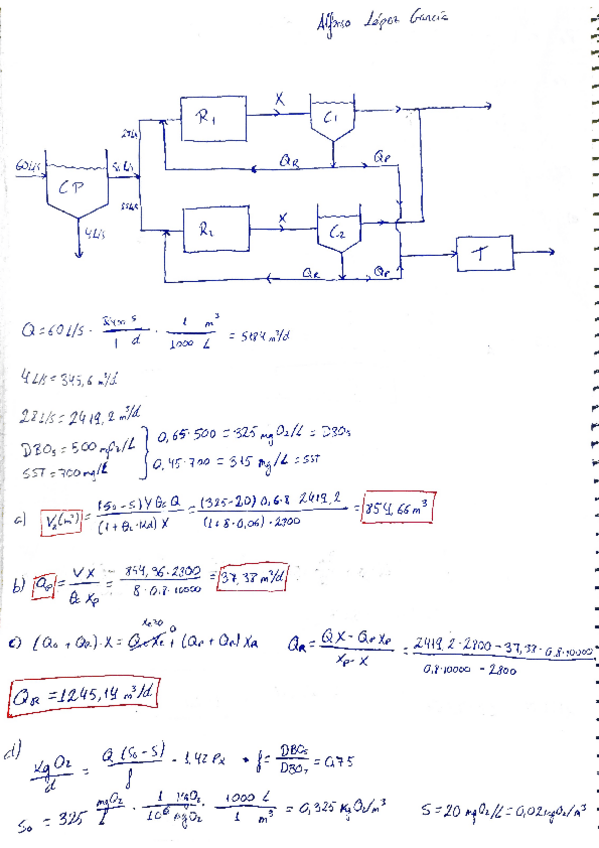 Alfonso López García
X
R1
C1
28L/s
QR
Qp
60L/s
56 L/s
CP
28L/s
X
R2
C2
4L/s
QR
Qp
T
Q = 60 L/s · s / 1 d · 1 m³ / 1000 L = 5184 m³/d
4 L/s = 345,6 m³/d
28 L/s = 2419,2 m³/d
DBO5 = 500 mgO2/L } 0,65·500 = 325 mgO2/L = DBO5
SST = 700 mg/L } 0,45·700 = 315 mg/L = SST
a) V2(m³) = (S0 - S) Y θc Q / (1 + θc · Kd) X = (325-20) 0,6·8 2419,2 / (1+8·0,06)·2800 = 854,66 m³
b) Qp = V X / θc Xp = 844,36·2800 / 8·0,8·10000 = 37,38 m³/d
Xe≈0
c) (Q0 + QR)·X = Qe Xe 0 + (Qp + QR) XR QR = QX - Qp Xp / Xp - X = 2419,2·2800 - 37,38·0,8·10000 / 0,8·10000 - 2800
QR = 1245,14 m³/d
d) KgO2 / d = Q (S0 - S) / f - 1,42 Px * f = DBO5 / DBO = 0,75
S0 = 325 mgO2 / L · 1 KgO2 / 10⁶ mgO2 · 1000 L / 1 m³ = 0,325 KgO2/m³ S = 20 mgO2/L = 0,02 KgO2/m³